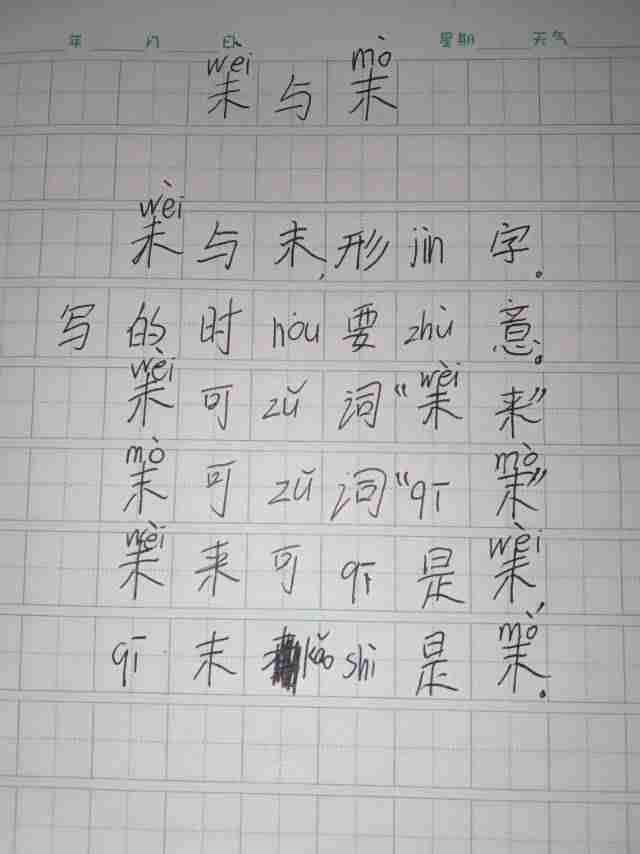 年 月 日 星期 天气
wèi mò
未与末
wèi
未与末,形jìn字。
写的时hòu要zhù意。
wèi wèi
未可zǔ词“未来”
mò mò
末可zǔ词“qī末”
wèi wèi
未来可qī是未,
mò
qī末kǎo shì是末。